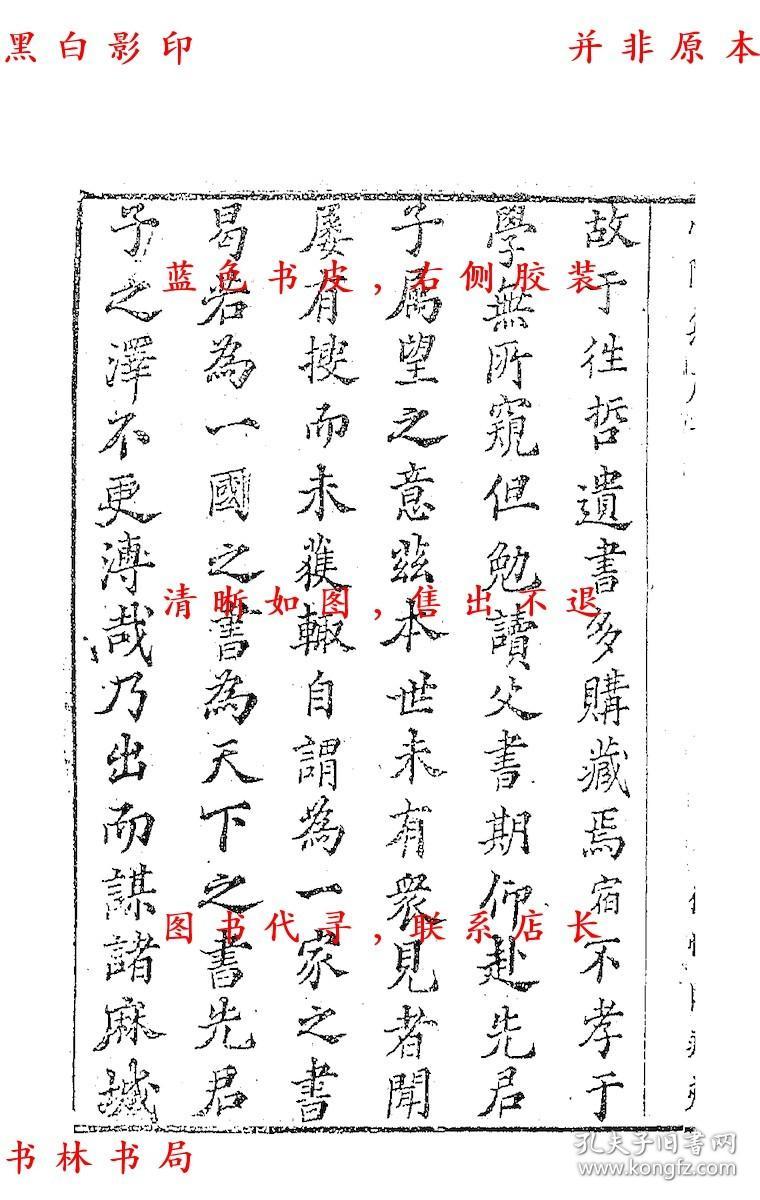 黑白影印
并非原本
故于往哲遺書多購藏焉宿不孝于
學無所窺但勉讀父書期仰赴先君
子属望之意茲本世未有衆見者聞
屡有搜而未獲輙自謂為一家之書
曷若為一國之書為天下之書先君
子之澤不更溥哉乃出而謀諸麻城
蓝色书皮，右侧胶装
清晰如图，售出不退
图书代寻，联系店长
书林书局
孔夫子旧书网
www.kongfz.com